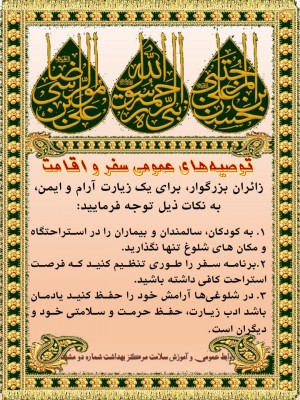 توصیه‌های عمومی سفر و اقامت
زائران بزرگوار، برای یک زیارت آرام و ایمن،
به نکات ذیل توجه فرمایید:
۱. به کودکان، سالمندان و بیماران را در استراحتگاه
و مکان های شلوغ تنها نگذارید.
۲.برنامه سفر را طوری تنظیم کنید که فرصت
استراحت کافی داشته باشید.
۳. در شلوغی‌ها آرامش خود را حفظ کنید یادمان
باشد ادب زیارت، حفظ حرمت و سلامتی خود و
دیگران است.
روابط عمومی و آموزش سلامت مرکز بهداشت شماره دو مشهد